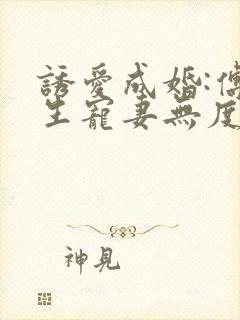 誘愛成婚:傅
生寵妻無度
神見